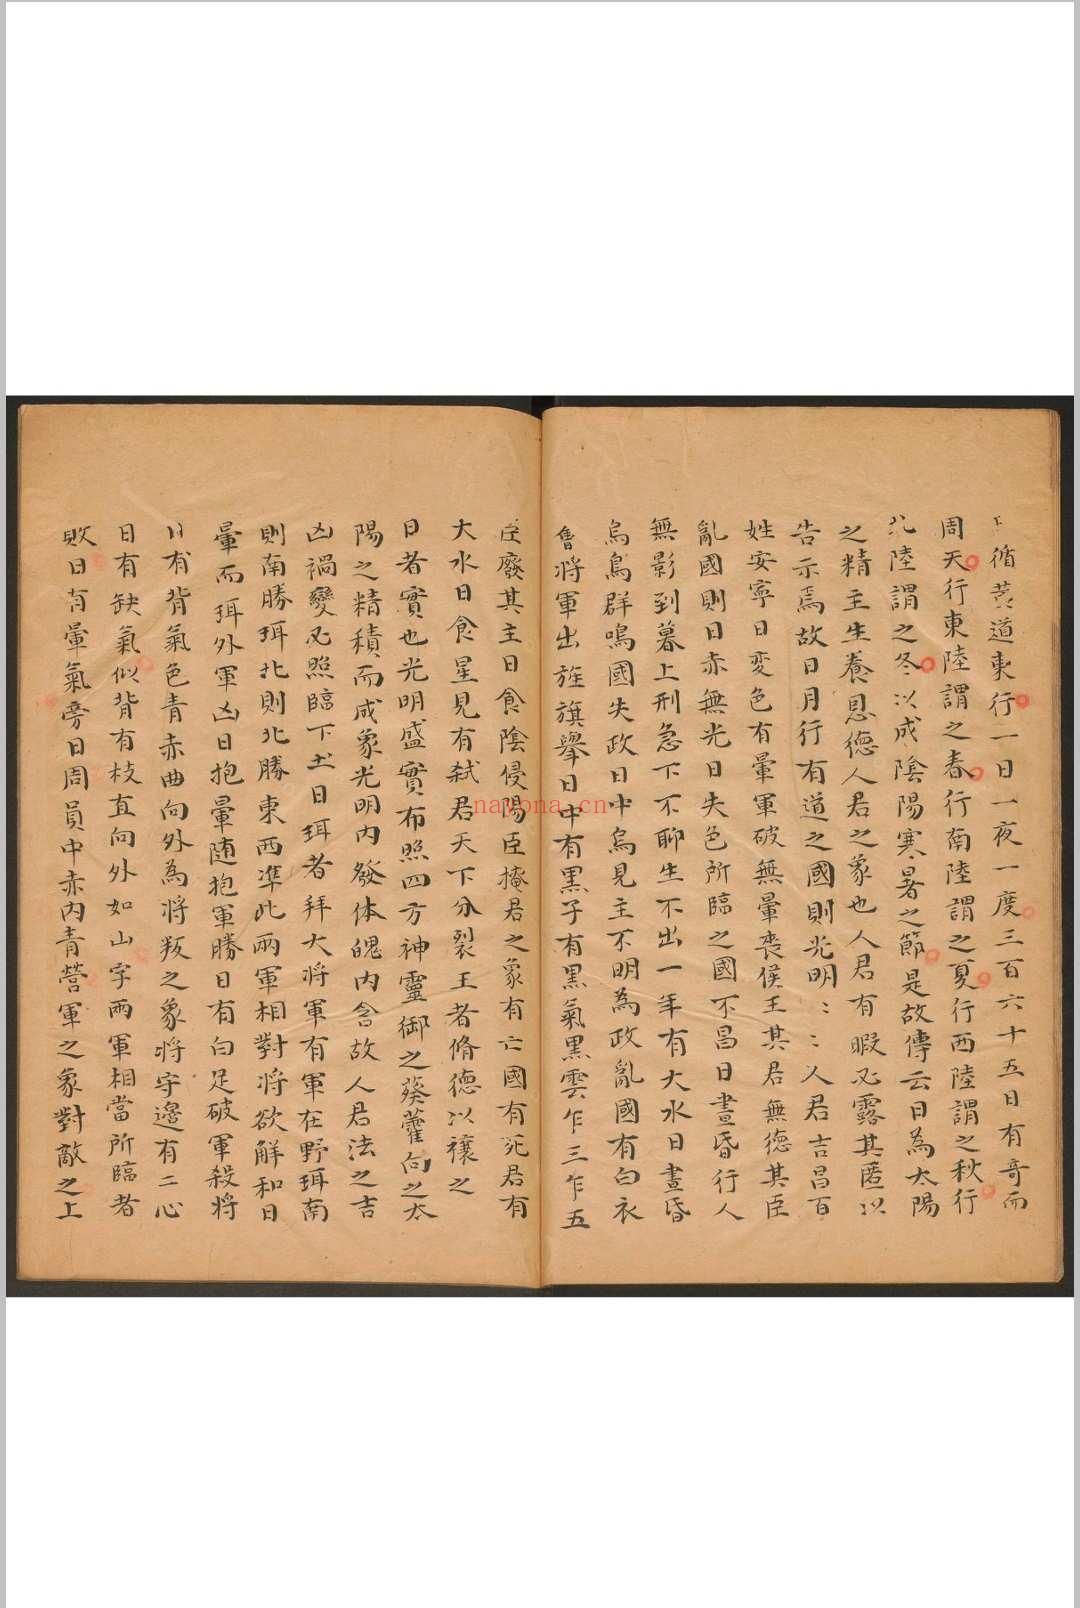 日循黃道東行一日一夜一度三百六十五日有奇而
周天行東陸謂之春行南陸謂之夏行西陸謂之秋行
北陸謂之冬以成陰陽寒暑之節是故傳云日為太陽
之精主生養恩德人君之象也人君有暇必露其匿以
告示焉故日月行有道之國則光明〻〻人君吉昌百
姓安寧日变色有暈軍破無暈喪侯王其君無德其臣
亂國則日赤無光日失色所臨之國不昌日晝昏行人
無影到暮上刑急下不聊生不出一年有大水日晝昏
烏鳥群鳴國失政日中烏見主不明為政亂國有白衣
會將軍出旌旗舉日中有黑子有黑氣黑雲乍三乍五
臣廢其主日食陰侵陽臣掩君之象有亡國有死君有
大水日食星見有弑君天下分裂王者脩德以禳之
日者實也光明盛實布照四方神靈御之葵藿向之太
陽之精積而成象光明內發体魄內含故人君法之吉
凶禍變必照臨下土日珥者拜大將軍有軍在野珥南
則南勝珥北則北勝東西準此兩軍相對將欲解和日
暈而珥外軍凶日抱暈随抱軍勝日有白足破軍殺將
日有背氣色青赤曲向外為將叛之象將守邊有二心
日有缺氣似背有枝直向外如山字兩軍相當所臨者
敗日有暈氣旁日周員中赤內青營軍之象對敵之上
nayona.cn